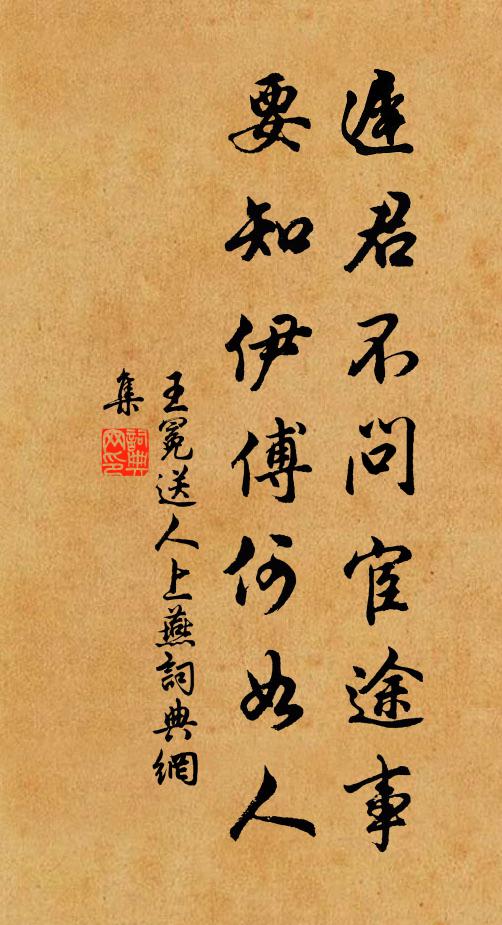 君不問宦途事
要知伊傅何如人
王冕送人上燕詞典網
集
詞典
网印